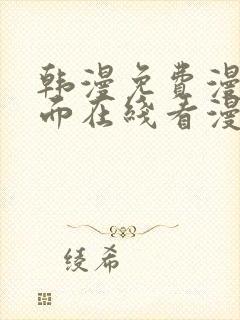 韩漫免费漫
而在线看漫
绫希